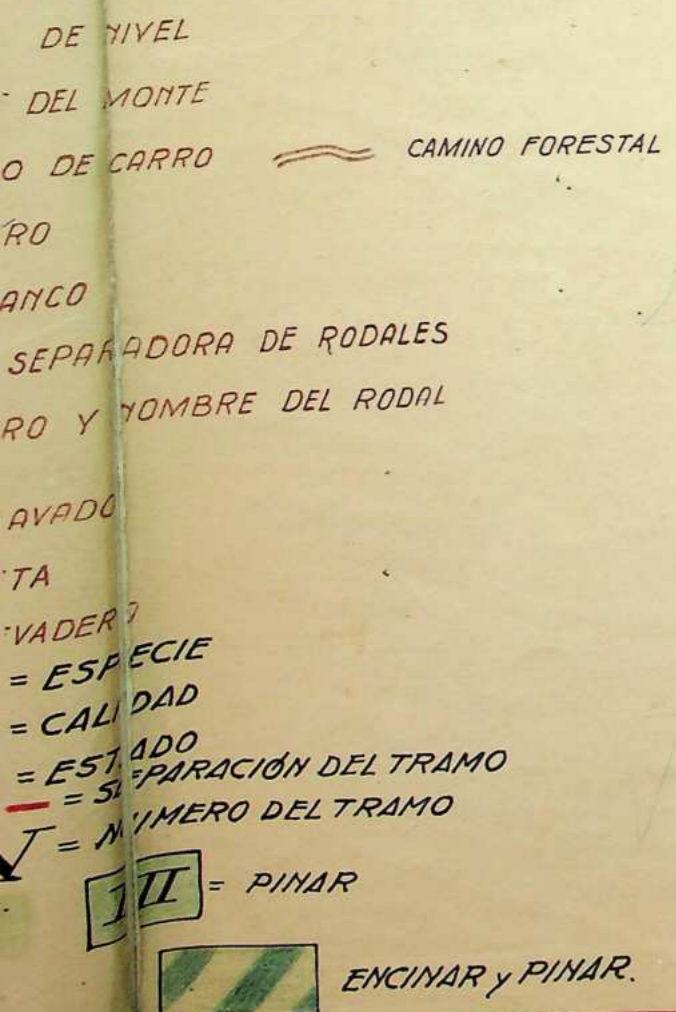 DE NIVEL
DEL MONTE
O DE CARRO CAMINO FORESTAL
RO
ANCO
SEPARADORA DE RODALES
RO Y NOMBRE DEL RODAL
AVADO
TA
VADERO
= ESPECIE
= CALIDAD
= ESTADO
= SEPARACIÓN DEL TRAMO
= NUMERO DEL TRAMO
III = PINAR
ENCINAR y PINAR.